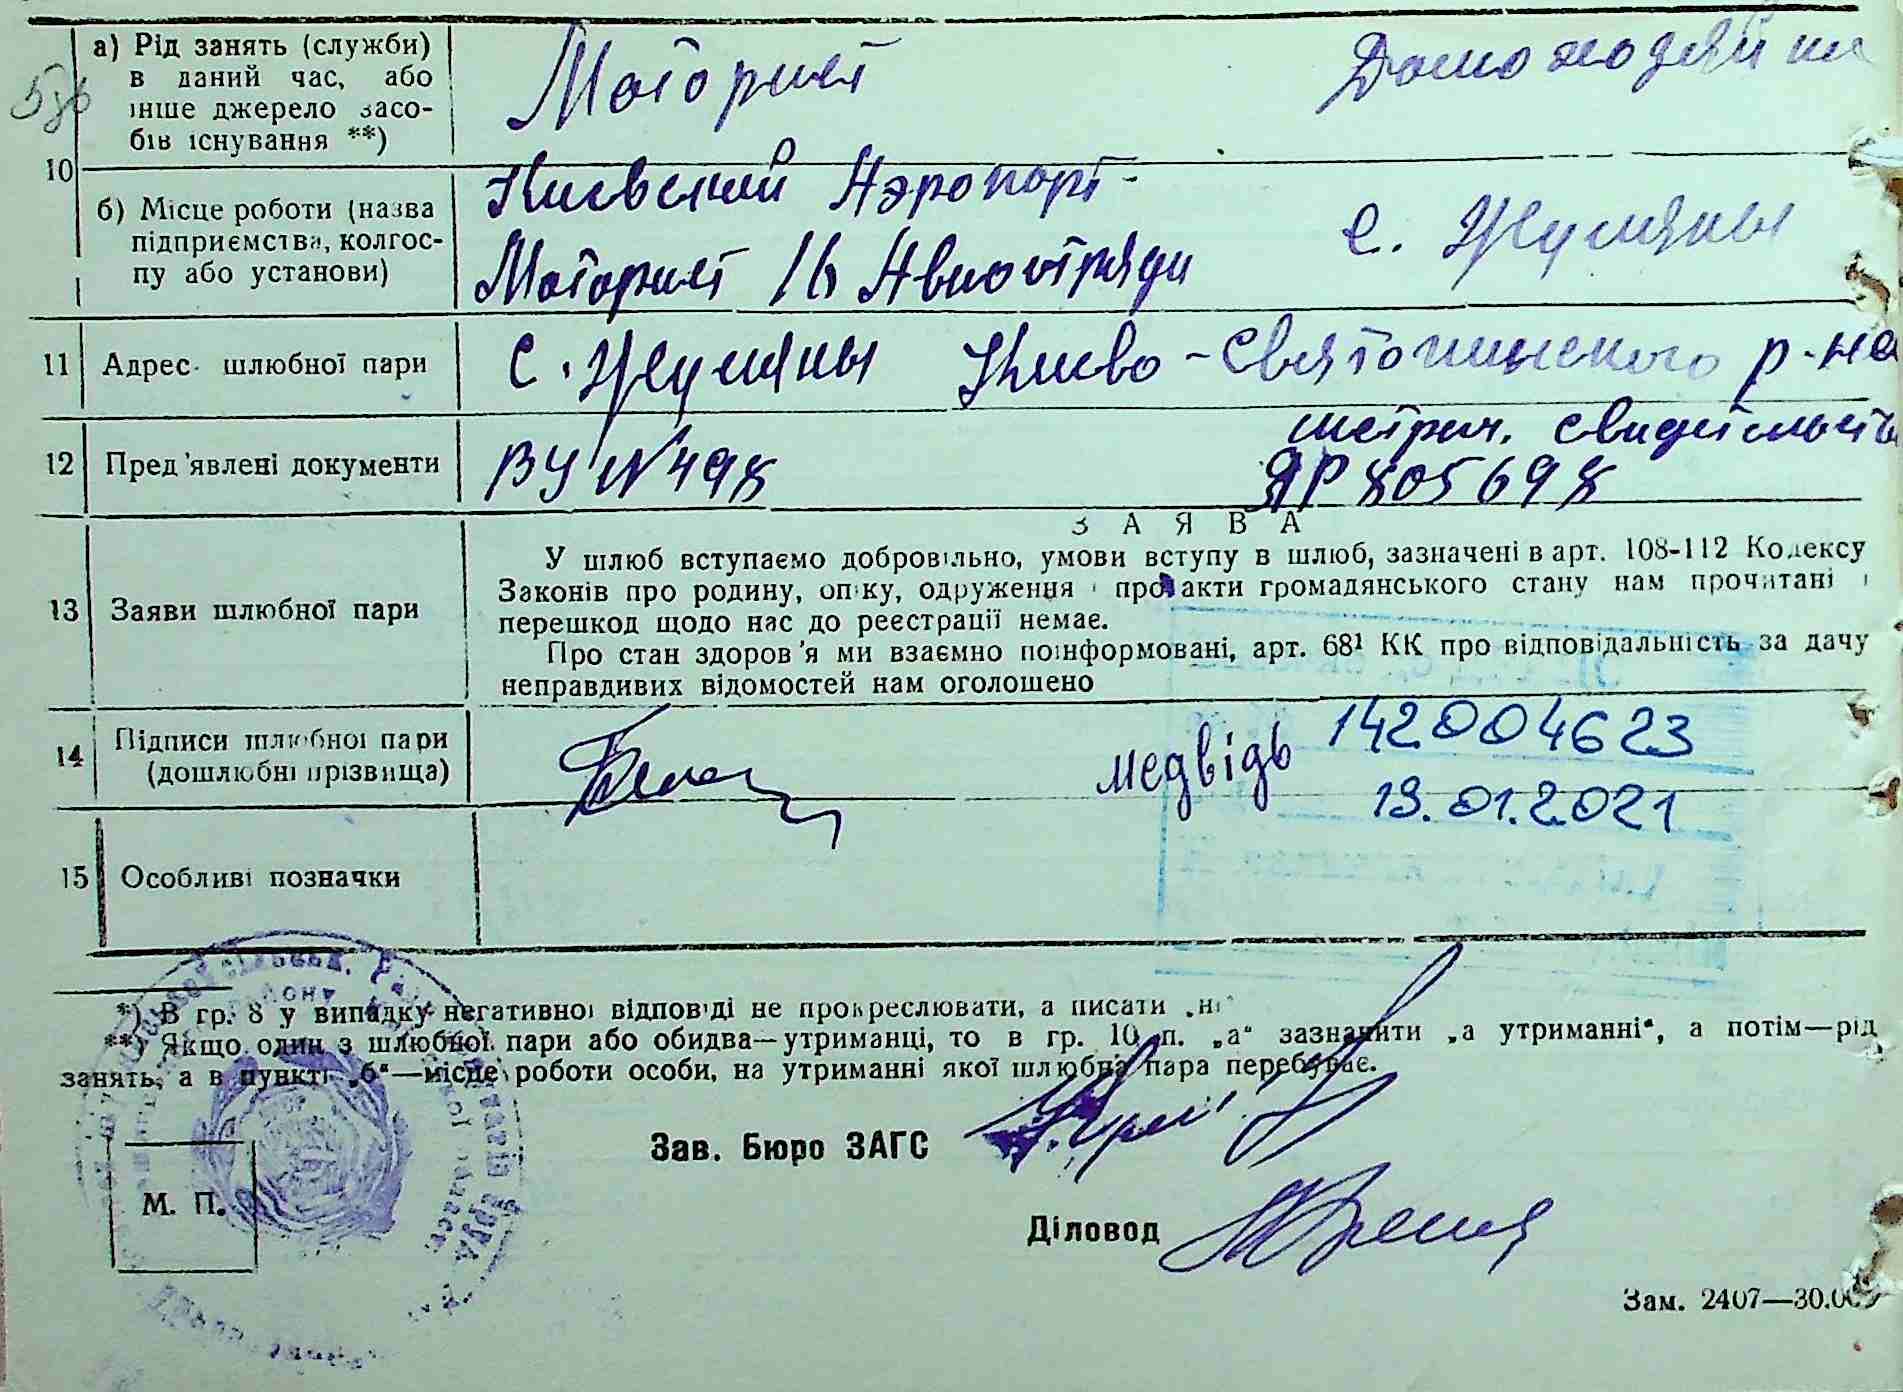 а) Рід занять (служби) в даний час, або інше джерело засобів існування **)
Моторист
Домохозяйка
10
б) Місце роботи (назва підприємства, колгоспу або установи)
Киевский Аэропорт
Моторист 16 Авиоотряда
с. Жуляны
11 Адрес шлюбної пари
с. Жуляны Киево-Святошинского р-на
12 Пред'явлені документи
ВУ № 498
метрич. свидетельств
ЯР 805698
13 Заяви шлюбної пари
ЗАЯВА
У шлюб вступаємо добровільно, умови вступу в шлюб, зазначені в арт. 108-112 Кодексу
Законів про родину, опіку, одруження і про акти громадянського стану нам прочитані і
перешкод щодо нас до реєстрації немає.
Про стан здоров'я ми взаємно поінформовані, арт. 68¹ КК про відповідальність за дачу
неправдивих відомостей нам оголошено
14 Підписи шлюбної пари (дошлюбні прізвища)
медвідь
142004623
19.01.2021
15 Особливі позначки
*) В гр. 8 у випадку негативної відповіді не прокреслювати, а писати „ні“
**) Якщо один з шлюбної пари або обидва—утриманці, то в гр. 10 п. „а“ зазначити „а утриманні“, а потім—рід
занять, а в пункті „б“—місце роботи особи, на утриманні якої шлюбна пара перебуває.
Зав. Бюро ЗАГС
М. П.
Діловод
Зам. 2407—30.000